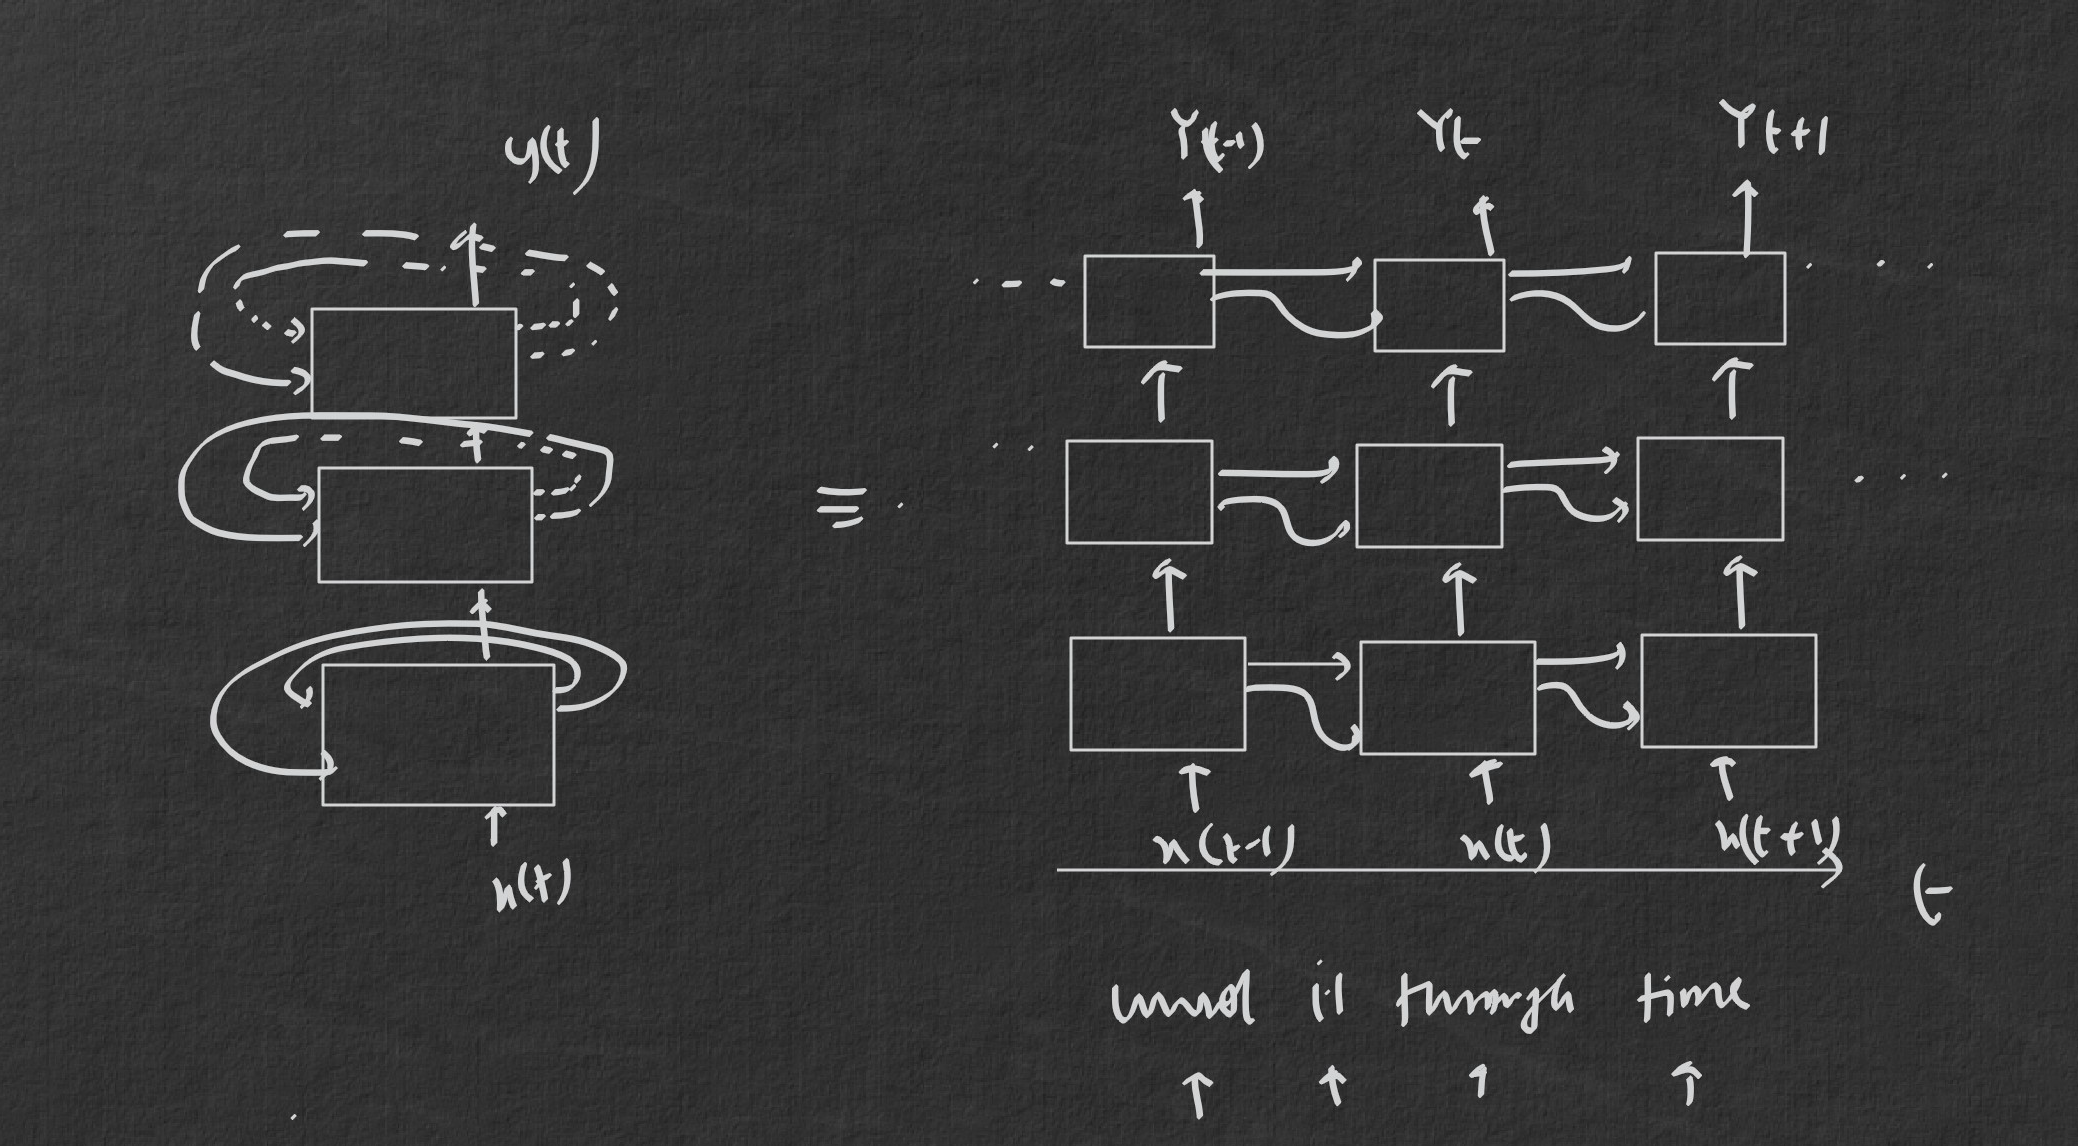 y(t)
Y(t-1) Yt Yt+1
=
x(t-1) x(t) x(t+1)
x(t)
t
unroll it through time